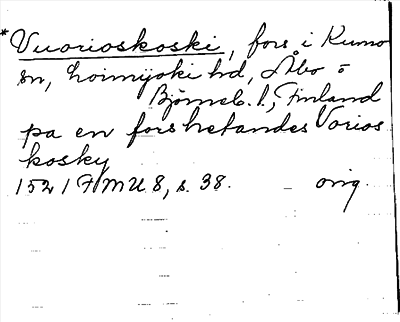 *Vuorioskoski, fors i Kumo
sn, Loimijoki hd, Åbo o
Björneb. l., Finland
pa en fors hetandes Vorios
kosky
1521 FMU 8, s. 38. orig.